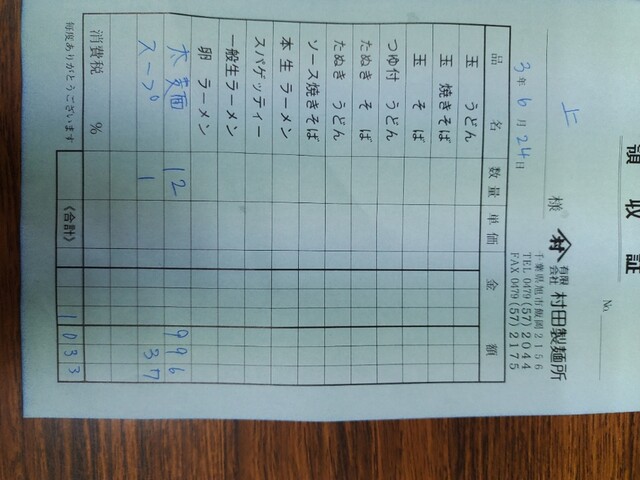 領収証
No.
上 様
3年6月24日
有限会社 村田製麺所
千葉県旭市飯岡2156
TEL 0479(57)2044
FAX 0479(57)2175
品名 数量 単価 金額
玉 うどん
玉 焼きそば
玉 そば
つゆ付 うどん
たぬき そば
たぬき うどん
ソース焼きそば
本生ラーメン
スパゲッティー
一般生ラーメン
卵 ラーメン
太麺 12 996
スープ 1 37
消費税 %
《合計》 1033
毎度ありがとうございます